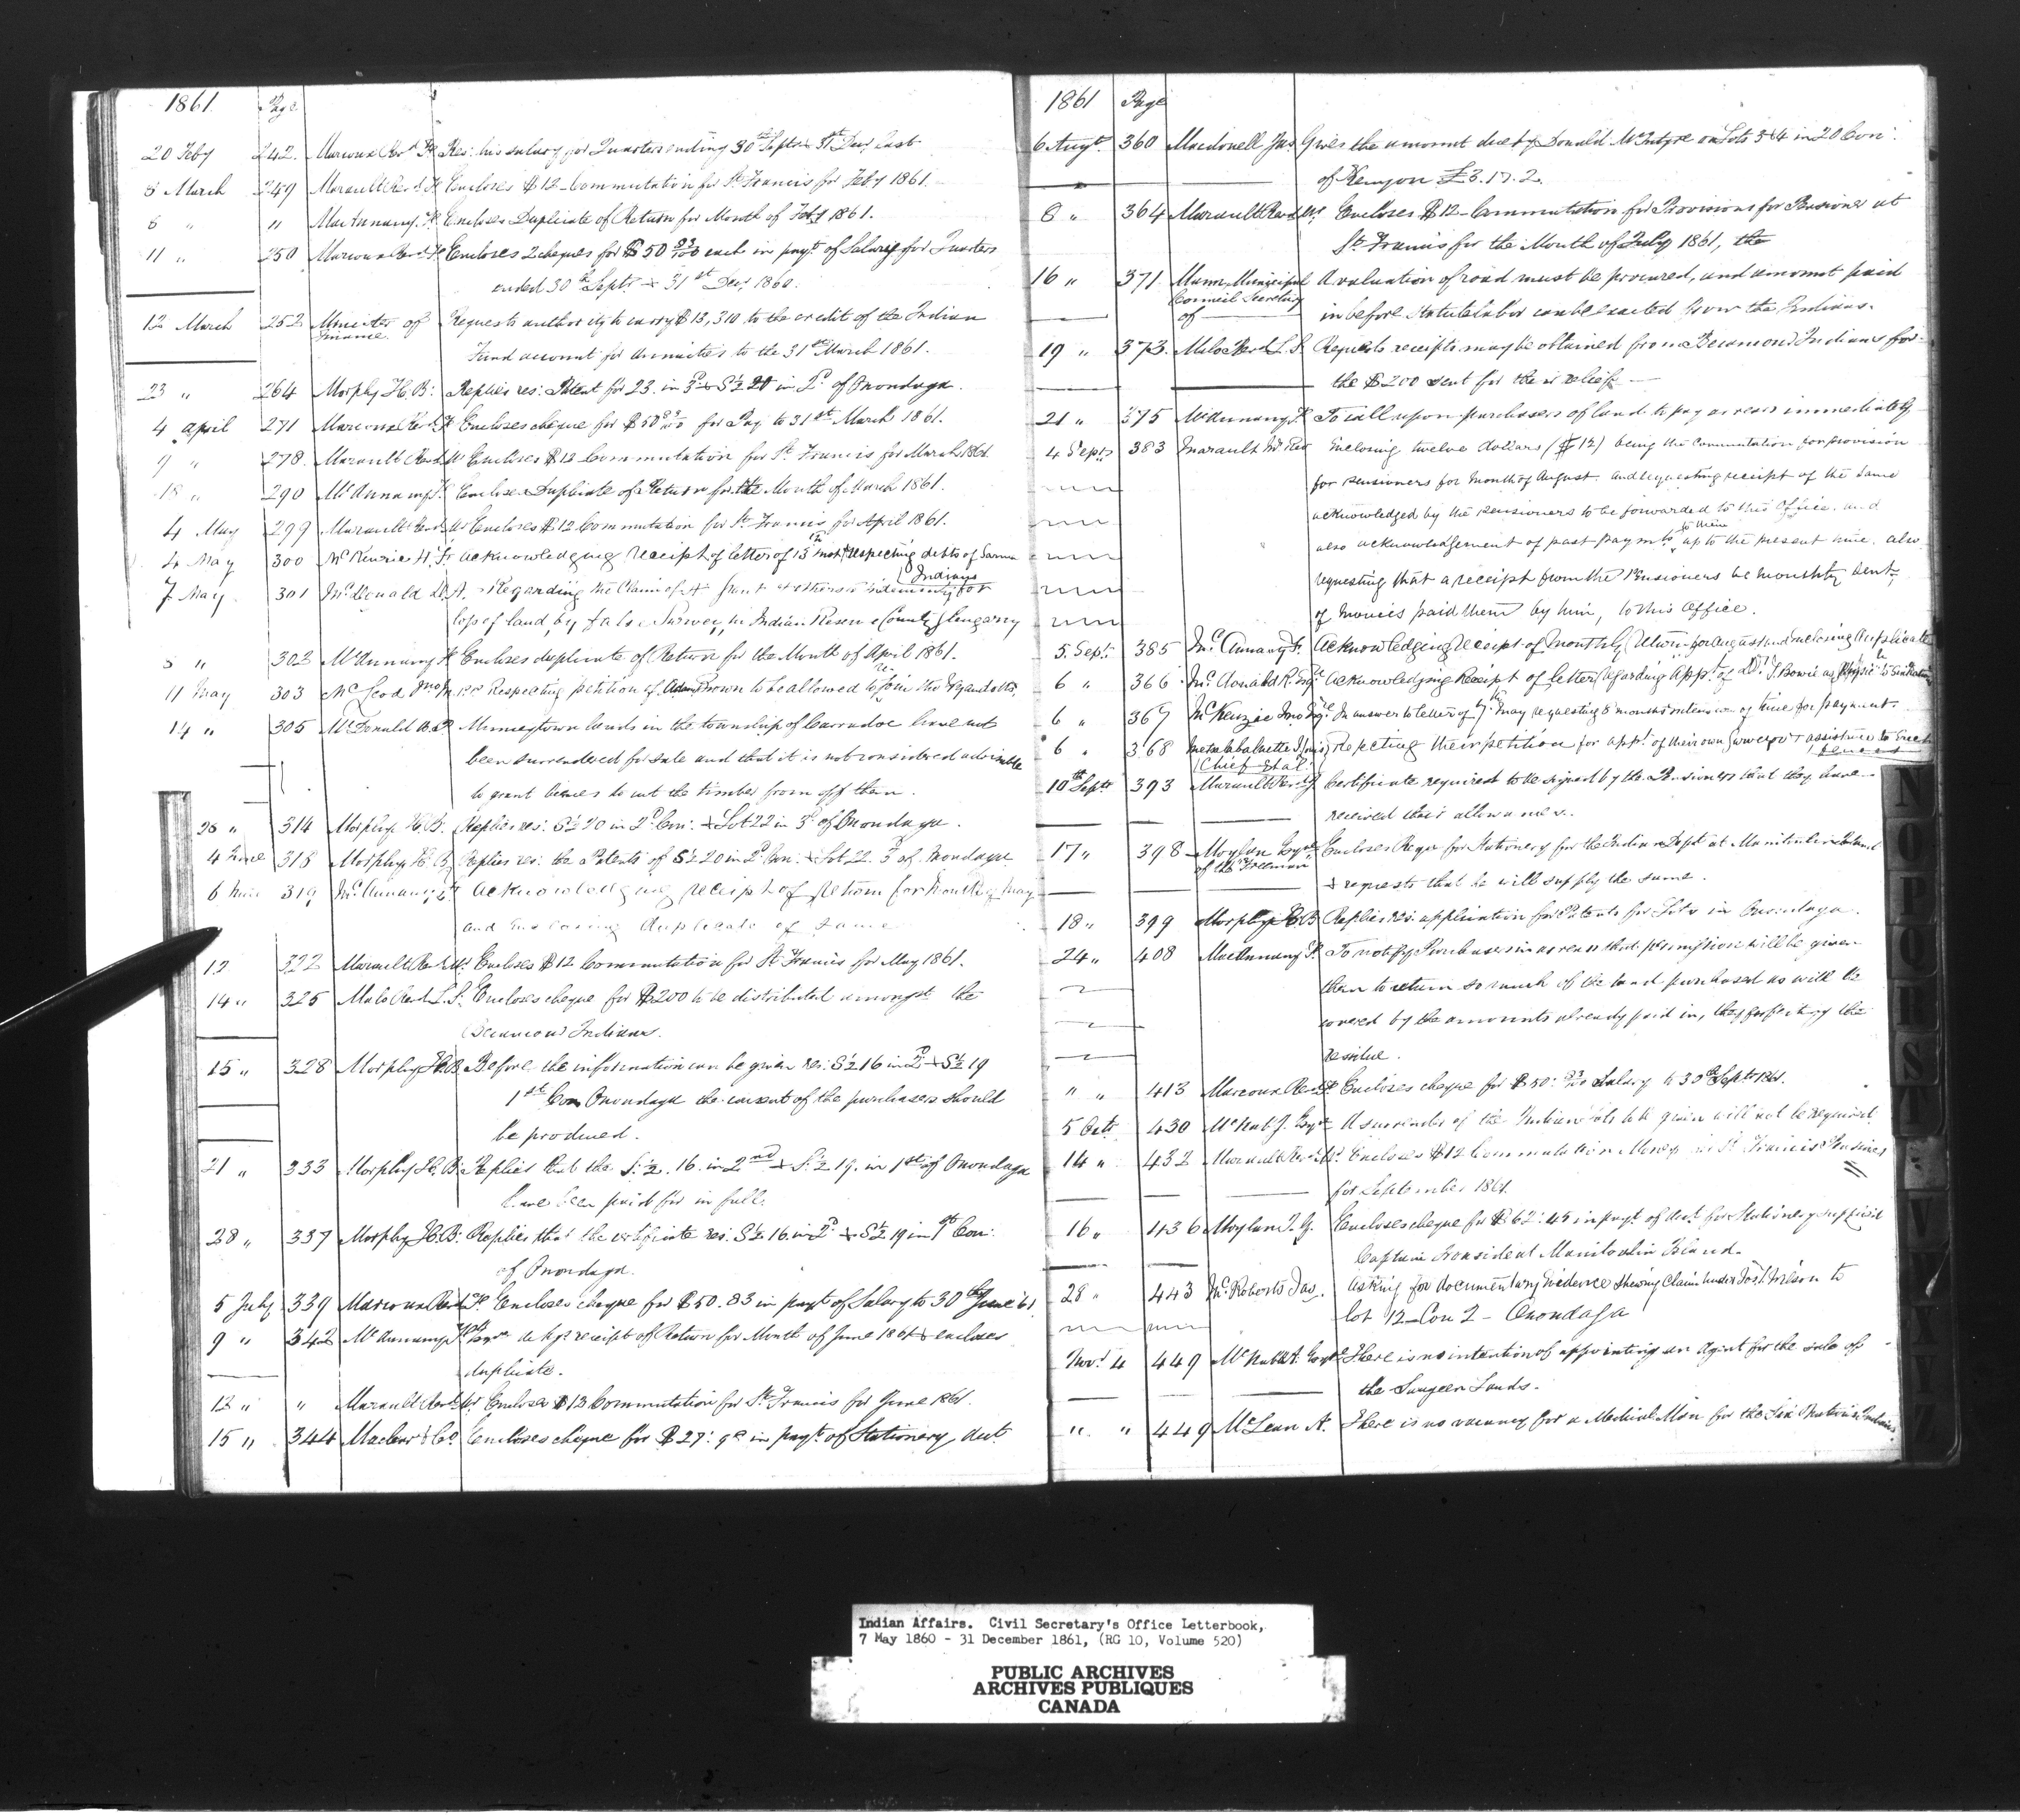 1861 Page
20 Feby 242 Marcoux Revd Fr Res: his salary for Quarters ending 30th Septr & 31st Decr last
5 March 249 Marault Revd Encloses $12 Commutation for St Francis for Feby 1861.
6 " " MacAnnany, F. Encloses Duplicate of Return for Month of Feby 1861.
11 " 250 Marcoux Revd Fr Encloses 2 cheques for $50 83/100 each in payt of Salary for Quarters
ended 30th Septr & 31st Decr 1860.
12 March 252 Minister of Requests authority to carry $13,310 to the credit of the Indian
Finance.
Fund account for Annuities to the 31st March 1861.
23 " 264 Morphy H. B: Replies res: Patent for 23. in 3d & S½ 20 in 2d of Onondaga.
4 April 271 Marcoux Revd Fr Encloses cheque for $50 83/100 for Pay to 31st March 1861.
9 " 278 Marault Revd Mr Encloses $12 Commutation for St Francis for March 1861
18 " 290 McAnnany F. Encloses Duplicate of Return for the Month of March 1861.
4 May 299 Marault Revd Mr Encloses $12 Commutation for St Francis for April 1861.
4 May 300 McKenzie H. Fr acknowledging receipt of letter of 13th inst respecting debts of Sarnia
Indians
7 May 301 McDonald D. A. Regarding the Claim of A Grant & others indemnity for
loss of land, by false Survey, in Indian Reserve County Glengarry
8 " 302 McAnnany F. Encloses duplicate of Return for the Month of April 1861.
11 May 303 McLeod Respecting petition of Adam Brown to be allowed to re-join the Wyandotts.
14 " 305 McDonald Munceytown lands in the township of Carradoc have not
been surrendered for sale and that it is not considered advisable
to grant licenses to cut the timber from off them.
314 Morphy H. B. Replies res: S½ 20 in 2d Con: & Lot 22 in 3d of Onondaga.
4 June 318 Morphy H. B. Replies res: the Patents of S½ 20 in 2d Con: & Lot 22. 3d of Onondaga
6 June 319 McAnnany, F. acknowledging receipt of return for Month of May
and Enclosing duplicate of same
12 322 Marault Revd Mr. Encloses $12 Commutation for St Francis for May 1861.
14 " 325 Malo Revd L. S. Encloses cheque for $200 to be distributed amongst the
Becancour Indians.
15 " 328 Morphy H. B. Before the information can be given res: S½ 16 in 2d & S½ 19
1st Con Onondaga the consent of the purchasers should
be produced.
21 " 333 Morphy H. B: Replies that the S. ½. 16. in 2nd & S. ½ 19. in 1st of Onondaga
have been paid for in full.
28 " 337 Morphy H. B: Replies that the certificate res: S½ 16 in 2d & S½ 19 in 1st Con:
of Onondaga.
5 July 339 Marcoux Revd Fr. Encloses cheque for $50.83 in payt of Salary to 30th June '61
9 " 342 McAnnany F. Esqre receipt of Return for Month of June 1861 & encloses
duplicate.
12 " " Marault Revd Mr Encloses $12 Commutation for St Francis for June 1861.
15 " 344 Maclear & Co. Encloses cheque for $27: 90 in payt of Stationery acct.
1861 Page
6 Augt. 360 Macdonell Jas. Gives the amount due by Donald McIntyre on Lots 3 & 4 in 20 Con:
of Kenyon £3.17.2.
8 " 364 Marault Revd Mr Encloses $12 Commutation for Provisions for Pensioner at
St Francis for the Month of July 1861, the
16 " 371. Municipal A valuation of road must be procured, and amount paid
Council Secretary
of in before Statute labor can be exacted from the Indians.
19 " 373. Malo Revd L. S. Requests receipts may be obtained from Becancour Indians for
the $200 sent for their relief
21 " 375 McAnnany F. To call upon purchasers of land to pay arrears immediately
4 Septr 383 Marault Mr Rev Inclosing twelve dollars ($12) being the Commutation for provision
for pensioners for month of August and requesting receipt of the same
acknowledged by the pensioners to be forwarded to this Office. and
to them
also acknowledgement of past payments up to the present time. also
requesting that a receipt from the Pensioners be monthly sent,
of Monies paid them by him, to this Office.
5 Septr 385 McAnnany F. Acknowledging receipt of monthly Return for August and enclosing duplicate
6 " 366 McDonald R. Esqr Acknowledging Receipt of letter regarding Appt of Dr. J. Bowie as Physic
6 " 367 McKenzie Jno Esqre In answer to letter of 7th May requesting 8 months extension of time for payment.
6 " 368 Rejecting their petition for appt of their own Surveyor & assistance to erect
Chief et al. fences
10th Septr 393 Marault Revd Certificate required to be signed by the Pensioners that they have
received their allowances.
17 " 398 Moylan Esqre Encloses Requn for Stationery for the Indian Dept at Manitoulin Island
of the Freeman
& requests that he will supply the same.
18 " 399 Morphy H. B Replies res: application for Patents for Lots in Onondaga.
24 " 408 MacAnnany F. To notify Purchasers in arrears that permission will be given
them to return so much of the land purchased as will be
covered by the amounts already paid in, they forfeiting the
residue.
" " 413 Marcoux Revd Fr Encloses cheque for $50: 83/100 Salary to 30th Septr 1861.
5 Octr 430 McNab J. Esqre A surrender of the Indian will not be required
14 " 432 Marault Revd Mr. Encloses $12 Commutation Money for St Francis Pensioner
for September 1861.
16 " 436 Moylan J. G. Encloses cheque for $62: 45 in payt of acct. for Stationery supplied
Captain Ironsides at Manitoulin Island.
28 " 443 McRoberts Jas. Asking for documentary evidence shewing claim under Jos. Wilson to
lot 12 Con 2 - Onondaga
Novr 4 449 McNabb A. Esqre There is no intention of appointing an Agent for the sale of
the Saugeen Lands.
" " 449 McLean A. There is no vacancy for a Medical Man for the Six Nations Indians.
N
O
P
Q
R
S
T
V
W
X
Y
Z
Indian Affairs. Civil Secretary's Office Letterbook,
7 May 1860 - 31 December 1861, (RG 10, Volume 520)
PUBLIC ARCHIVES
ARCHIVES PUBLIQUES
CANADA